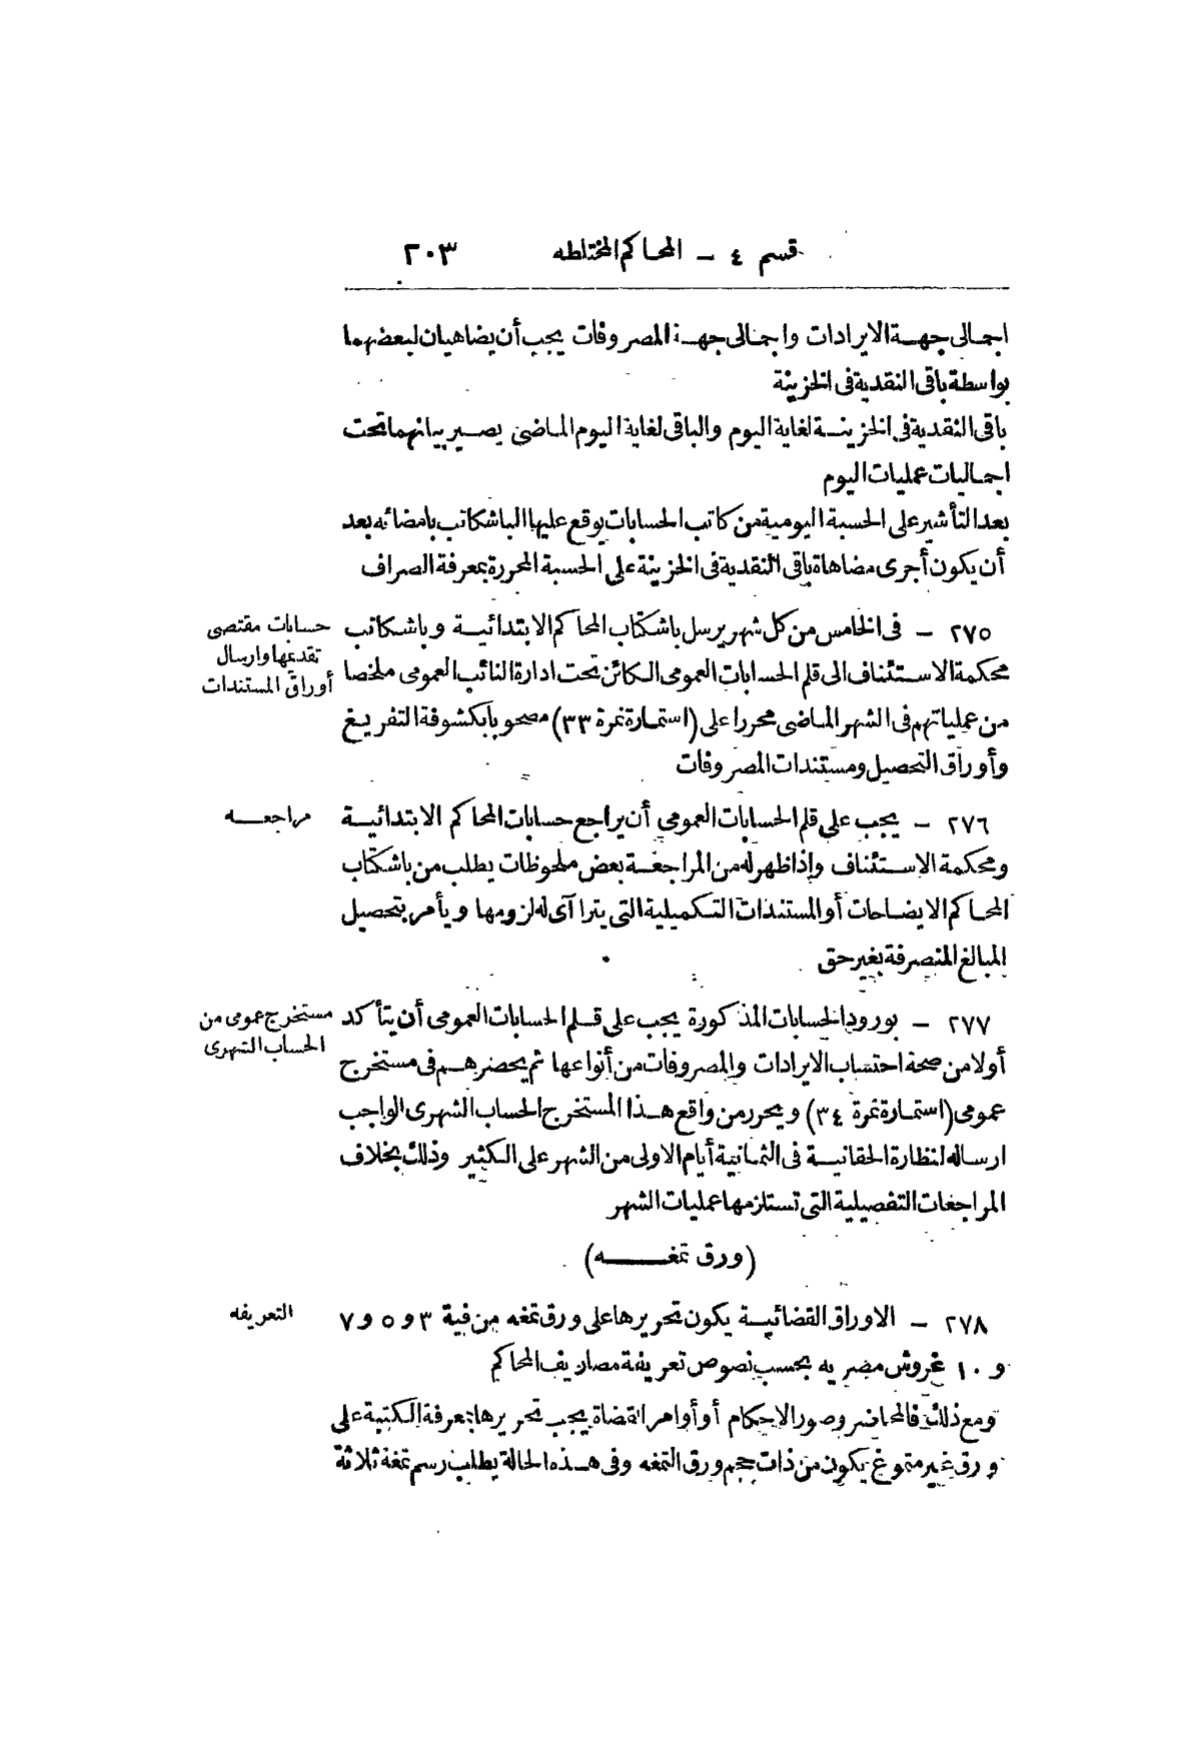 قسم ٤ – المحاكم المختلطه ٢٠٣
اجمالى جهة الايرادات واجمالى جهة المصروفات يجب أن يضاهيان لبعضهما
بواسطة باقى النقدية فى الخزينة
باقى النقدية فى الخزينة لغاية اليوم والباقى لغاية اليوم الماضى يصير بيانهما تحت
اجماليات عمليات اليوم
بعد التأشير على الحسبة اليومية من كاتب الحسابات يوقع عليها الباشكاتب بامضائه بعد
أن يكون أجرى مضاهاة باقى النقدية فى الخزينة على الحسبة المحررة بمعرفة الصراف
حسابات مقتصى
تقديمها وارسال
أوراق المستندات
٢٧٥ – فى الخامس من كل شهر يرسل باشكتاب المحاكم الابتدائية وباشكاتب
محكمة الاستئناف الى قلم الحسابات العمومى الكائن تحت ادارة النائب العمومى ملخصا
من عملياتهم فى الشهر الماضى محررا على (استمارة نمرة ٣٣) مصحوبا بكشوفة التفريغ
وأوراق التحصيل ومستندات المصروفات
مراجعه
٢٧٦ – يجب على قلم الحسابات العمومى أن يراجع حسابات المحاكم الابتدائية
ومحكمة الاستئناف واذا ظهر له من المراجعة بعض ملحوظات يطلب من باشكتاب
المحاكم الايضاحات أو المستندات التكميلية التى يترا آى له لزومها ويأمر بتحصيل
المبالغ المنصرفة بغير حق
مستخرج عمومى من
الحساب الشهرى
٢٧٧ – بورود الحسابات المذكورة يجب على قلم الحسابات العمومى أن يتأكد
أولا من صحة احتساب الايرادات والمصروفات من أنواعها ثم يحصرهم فى مستخرج
عمومى (استمارة نمرة ٣٤) ويحرر من واقع هذا المستخرج الحساب الشهرى الواجب
ارساله لنظارة الحقانية فى الثمانية أيام الاولى من الشهر على الكثير وذلك بخلاف
المراجعات التفصيلية التى تستلزمها عمليات الشهر
(ورق تمغه)
التعريفه
٢٧٨ – الاوراق القضائية يكون تحريرها على ورق تمغه من فية ٣ و ٥ و ٧
و ١٠ غروش مصريه بحسب نصوص تعريفة مصاريف المحاكم
ومع ذلك فالمحاضر وصور الاحكام أو أوامر القضاة يجب تحريرها بمعرفة الكتبة على
ورق غير متموغ يكون من ذات حجم ورق التمغه وفى هذه الحالة يطلب رسم تمغة ثلاثة